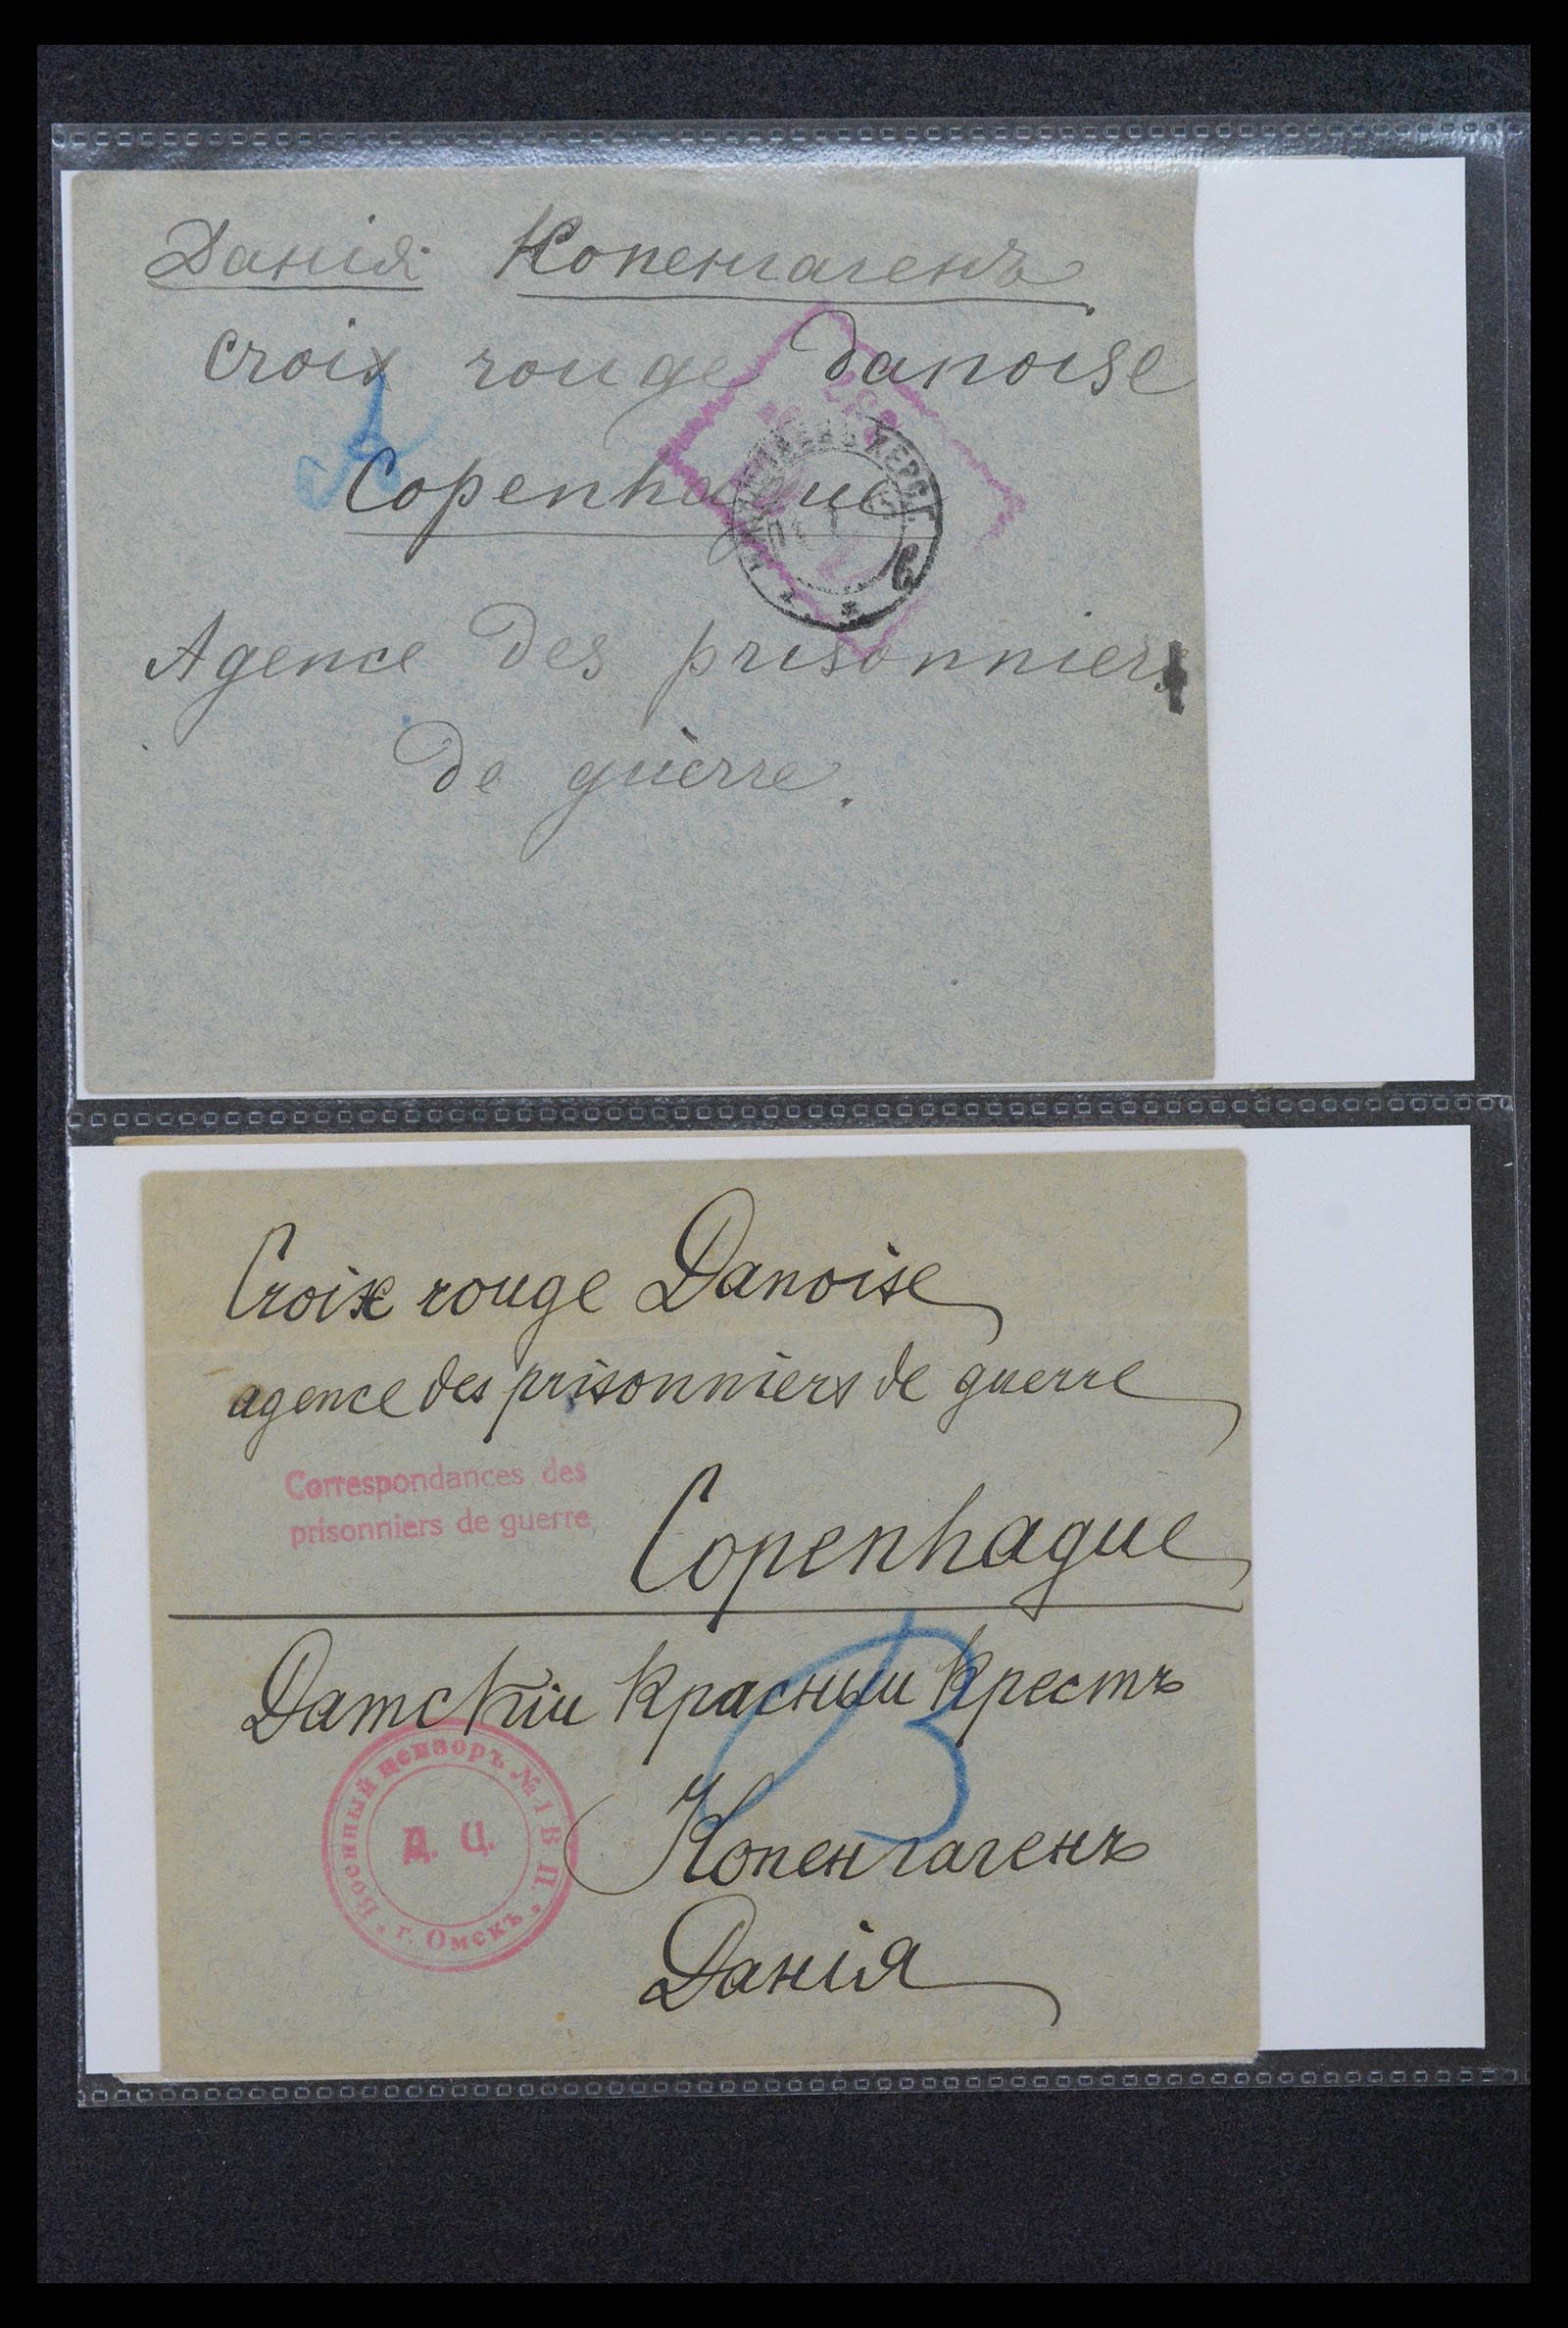 Данія Копенгагенъ
croix rouge danoise
Copenhague
Agence des prisonniers
de guèrre.
6
Croix rouge Danoise
agence des prisonniers de guerre
Correspondances des
prisonniers de guerre
Copenhague
Датскій Красный Крестъ
Военный цензоръ № 1 В П. * г. Омскъ *
Д. Ц.
Копенгагенъ
Данія